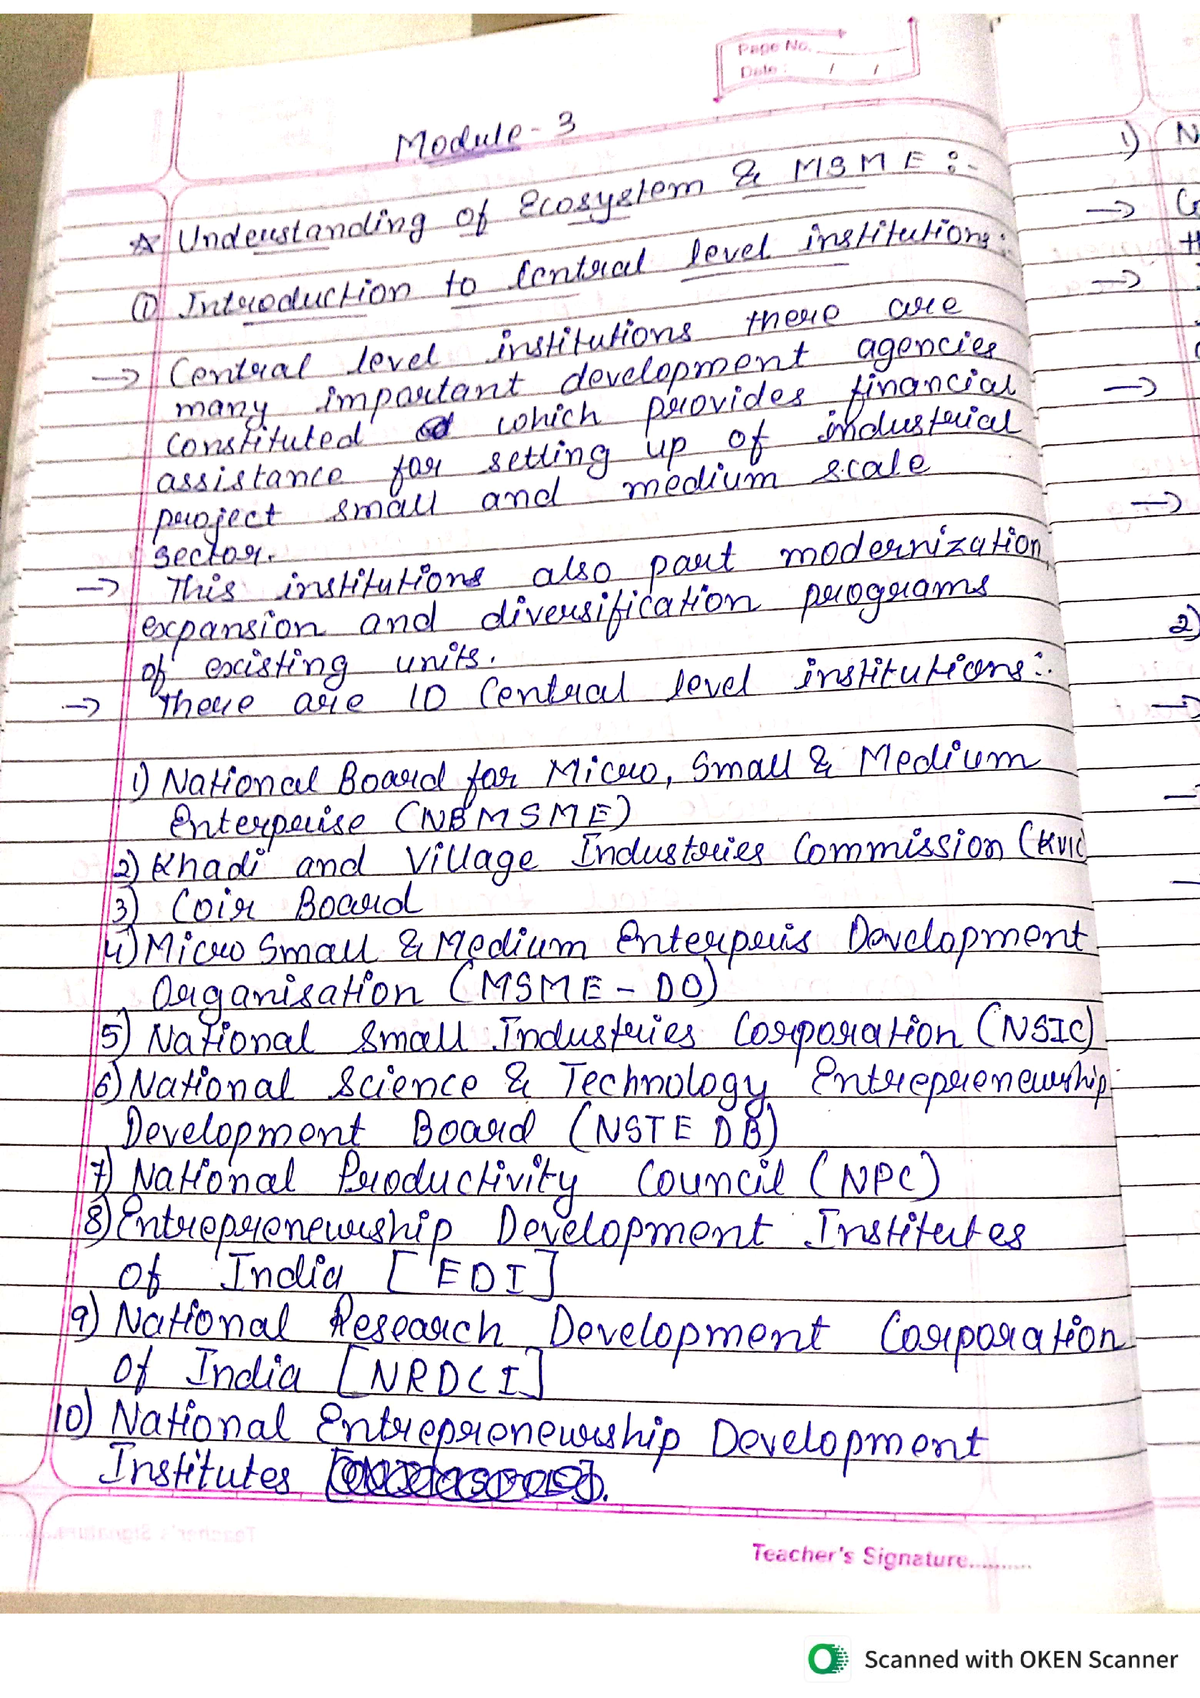 Page No.
Date : / /
Module - 3
☆ Understanding of Ecosystem & MSME :-
① Introduction to Central level institutions.
→ Central level institutions there are
many important development agencies
constituted which provides financial
assistance for setting up of industrial
project small and medium scale
sector.
→ This institutions also part modernization,
expansion and diversification programs
of existing units.
→ There are 10 Central level institutions :.
1) National Board for Micro, Small & Medium
Enterprise (NBMSME)
2) Khadi and Village Industries Commission (KVIC
3) Coir Board
4) Micro Small & Medium Enterpris Development
Organisation (MSME - DO)
5) National Small Industries Corporation (NSIC)
6) National Science & Technology Entrepreneurship
Development Board (NSTEDB)
7) National Productivity Council (NPC)
8) Entrepreneurship Development Institutes
of India [EDI]
9) National Research Development Corporation
of India [NRDCI]
10) National Entrepreneurship Development
Institutes
Teacher's Signature...........
1) N
→
→
→
→
2)
→
Scanned with OKEN Scanner